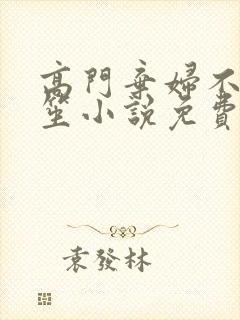 高門棄婦不
笙小說免費
袁發林